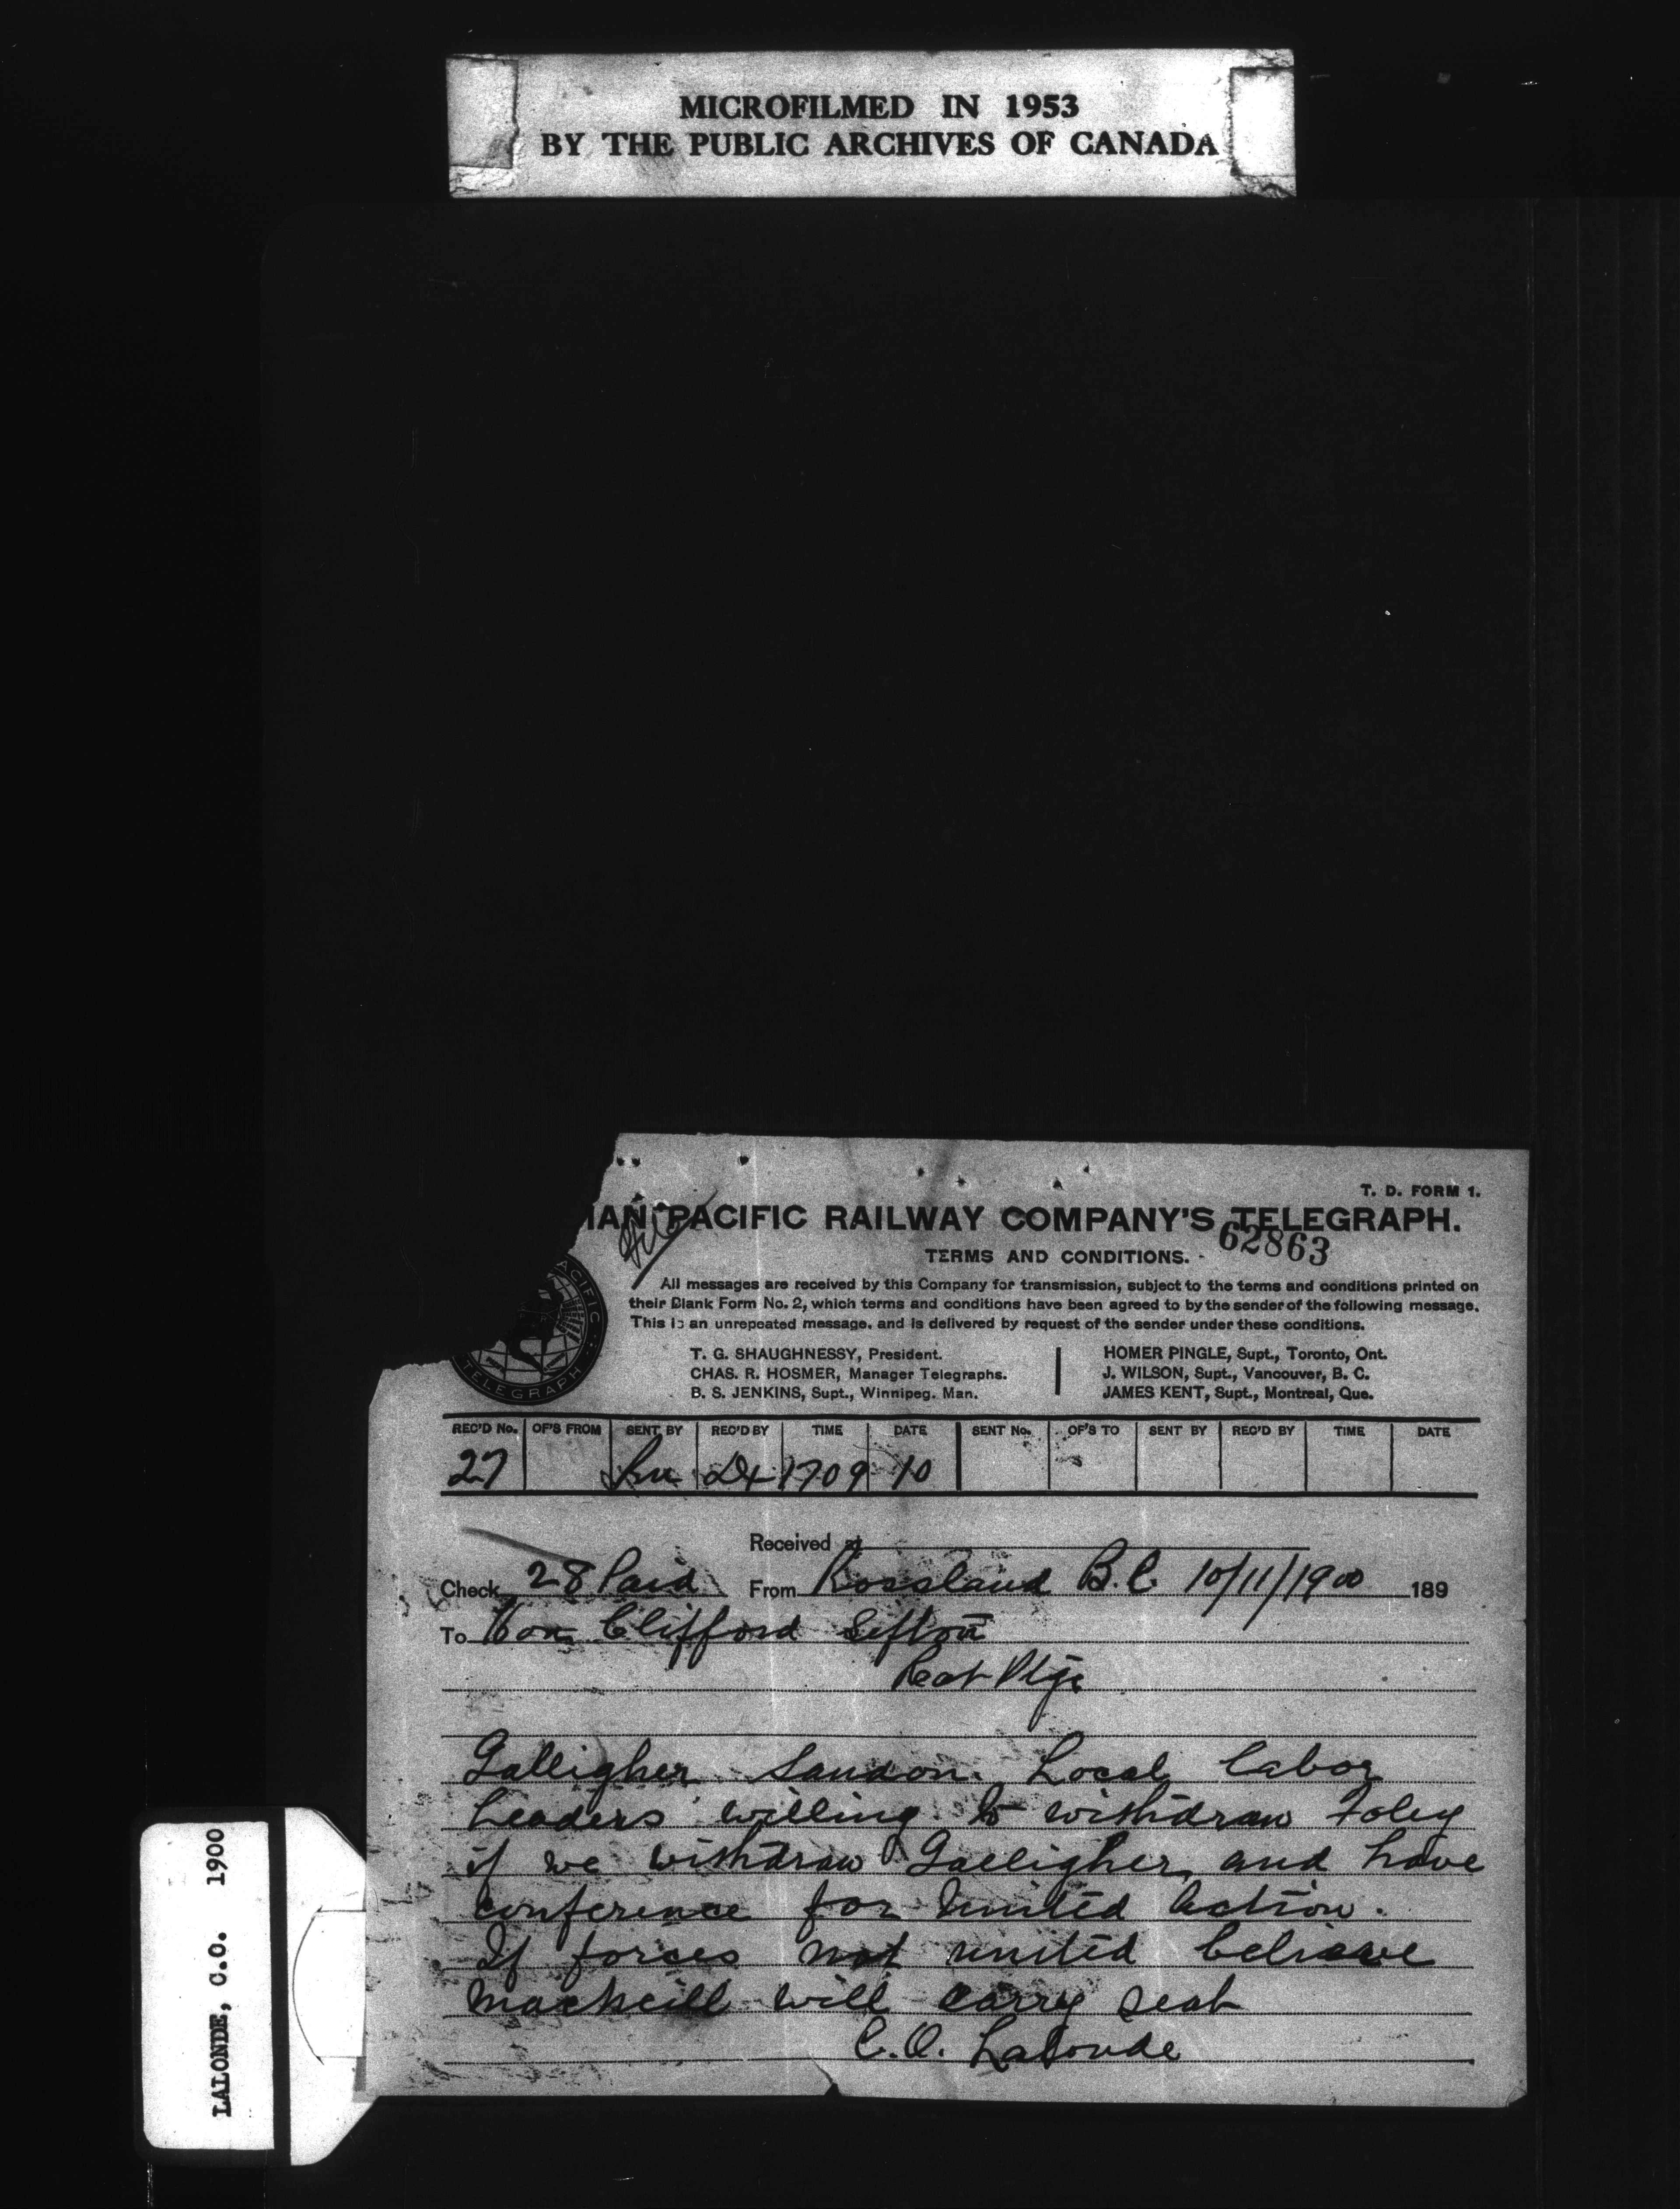 MICROFILMED IN 1953
BY THE PUBLIC ARCHIVES OF CANADA
T. D. FORM 1.
IAN PACIFIC RAILWAY COMPANY'S TELEGRAPH.
62863
TERMS AND CONDITIONS.
All messages are received by this Company for transmission, subject to the terms and conditions printed on
their Blank Form No. 2, which terms and conditions have been agreed to by the sender of the following message.
This is an unrepeated message, and is delivered by request of the sender under these conditions.
T. G. SHAUGHNESSY, President.
CHAS. R. HOSMER, Manager Telegraphs.
B. S. JENKINS, Supt., Winnipeg. Man.
HOMER PINGLE, Supt., Toronto, Ont.
J. WILSON, Supt., Vancouver, B. C.
JAMES KENT, Supt., Montreal, Que.
ACIFIC
TELEGRAPH
REC'D No. OF'S FROM SENT BY REC'D BY TIME DATE SENT No. OF'S TO SENT BY REC'D BY TIME DATE
27 1709 10
Received at
Check 28 Paid From Rossland B.C 10/11/1900 189
To Hon Clifford Sifton
Rat Ptge
Galligher Sandon. Local labor
Leaders willing to withdraw Foley
if we withdraw Galligher and have
conference for United action.
If forces not united believe
MacNeill will carry seat
C.O. LaLonde
LALONDE, C.O. 1900